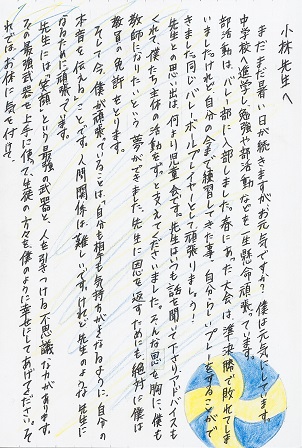 小林先生へ
まだまだ暑い日が続きますがお元気ですか？僕は元気にしてます。
中学校へ進学し勉強や部活動などを一生懸命頑張っています。
部活動は、バレー部に入部しました。春にあった大会は準決勝で敗れてしま
いましたけれど自分の今まで練習してきた事、自分らしいプレーをすることがで
きました。同じバレーボールプレイヤーとして頑張りましょう！
先生との思い出は、何より児童会です。先生はいつも話を聞いて下さりアドバイスを
くれ「僕たち主体の活動をす。」と支えてくださいました。そんな恩を胸に僕も
教師になりたいという夢ができました。先生に恩を返すためにも絶対に僕は
教員の免許をとります。
そして今、僕が頑張っていることは「自分も相手も気持ちがよくなるように、自分の
本音を伝える」ことです。人間関係は難しいです。けれど先生のような先生に
なるために頑張ってます。
先生には「笑顔」という最強の武器と、人を引きつける不思議な力があります。
その最強武器を上手に使って、生徒の方々を僕のように幸せにしてあげてください。そ
れではお体に気を付けて。